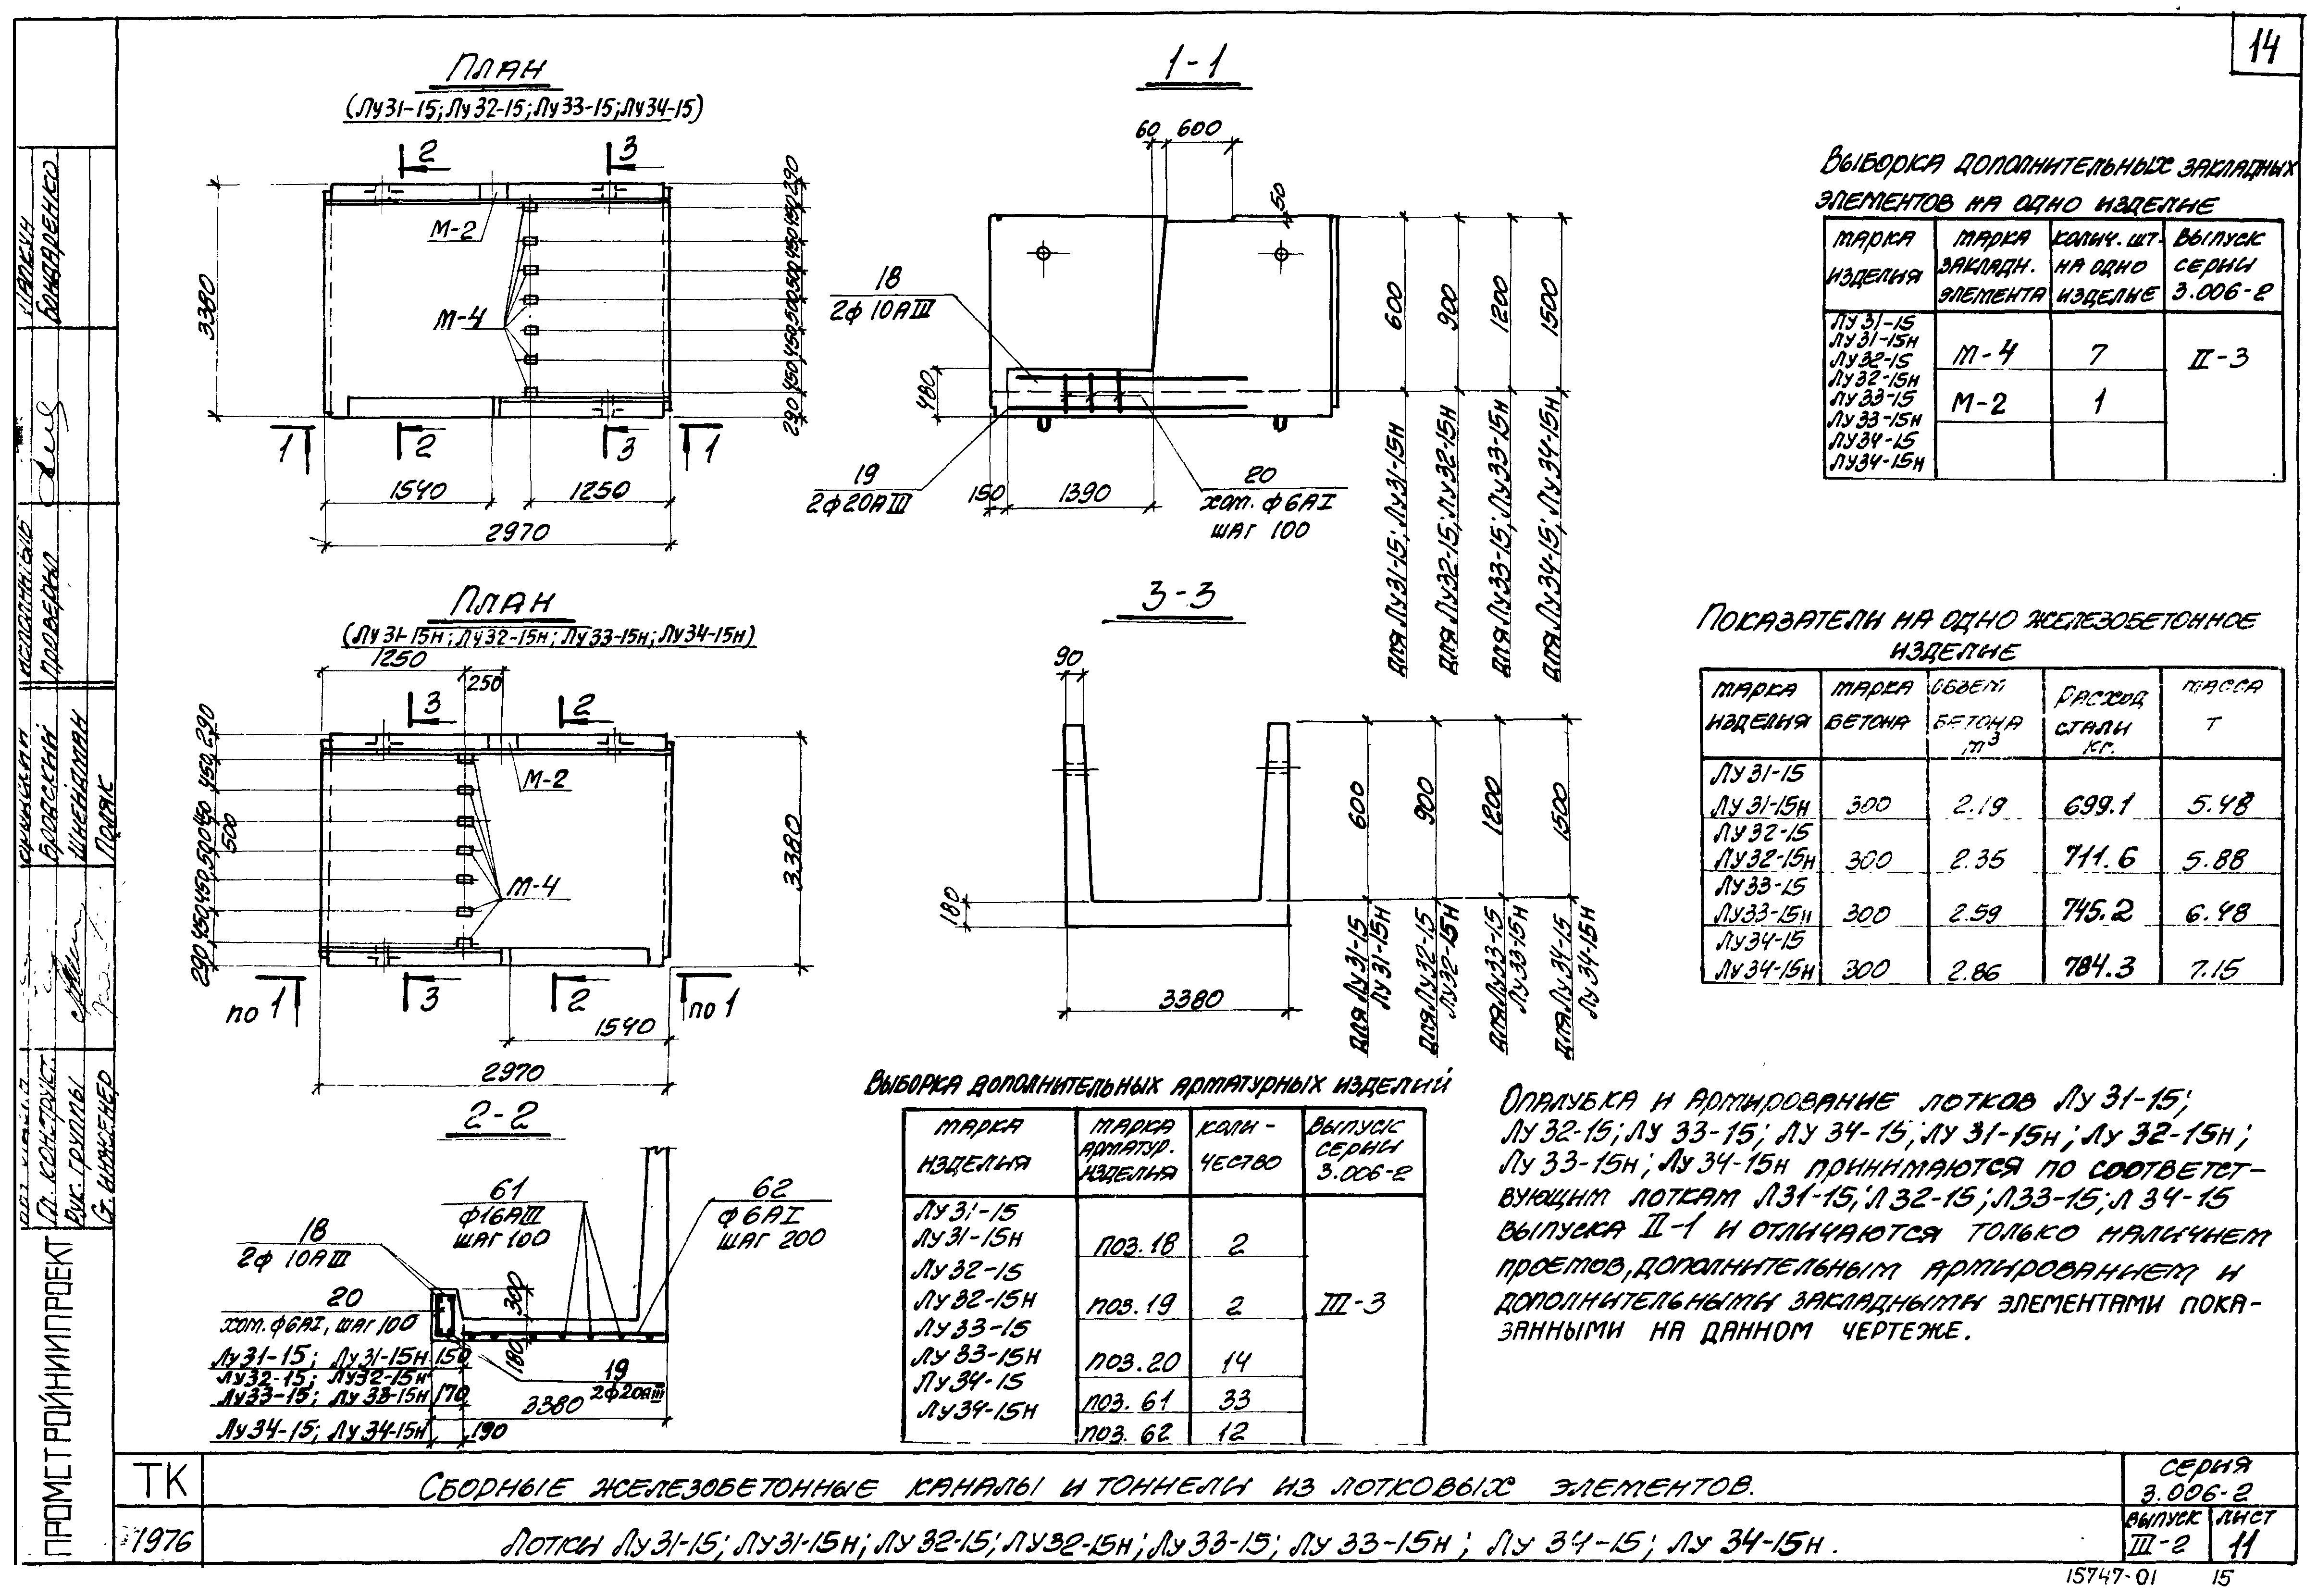 14
План
(Лу31-15; Лу32-15; Лу33-15; Лу34-15)
2
3
М-2
М-4
3380
290 450 450 500 500 450 450 290
1
2
3
1
1540
1250
2970
1-1
60
600
50
18
2ф10АIII
480
19
2ф20АIII
150
1390
20
хом. ф6АI
шаг 100
600
900
1200
1500
для Лу31-15; Лу31-15н
для Лу32-15; Лу32-15н
для Лу33-15; Лу33-15н
для Лу34-15; Лу34-15н
Выборка дополнительных закладных
элементов на одно изделие
марка изделия
марка закладн. элемента
колич. шт. на одно изделие
Выпуск серии 3.006-2
Лу31-15
Лу31-15н
Лу32-15
Лу32-15н
Лу33-15
Лу33-15н
Лу34-15
Лу34-15н
М-4 7 II-3
М-2 1
План
(Лу31-15н; Лу32-15н; Лу33-15н; Лу34-15н)
1250
250
3
2
М-2
М-4
290 450 450 500 500 450 450 290
3380
по 1
3
2
по 1
1540
2970
3-3
90
180
3380
600
900
1200
1500
для Лу31-15
Лу31-15н
для Лу32-15
Лу32-15н
для Лу33-15
Лу33-15н
для Лу34-15
Лу34-15н
Показатели на одно железобетонное
изделие
марка изделия
марка бетона
объем бетона м3
Расход стали кг.
масса т
Лу31-15
Лу31-15н 300 2.19 699.1 5.48
Лу32-15
Лу32-15н 300 2.35 711.6 5.88
Лу33-15
Лу33-15н 300 2.59 745.2 6.48
Лу34-15
Лу34-15н 300 2.86 784.3 7.15
2-2
61
ф16АIII
шаг 100
62
ф6АI
шаг 200
18
2ф 10АIII
20
хом. ф6АI, шаг 100
300
180
Лу31-15; Лу31-15н 150
Лу32-15; Лу32-15н
Лу33-15; Лу33-15н 170
Лу34-15; Лу34-15н 190
19
2ф20АIII
3380
Выборка дополнительных арматурных изделий
марка изделия
марка арматур. изделия
коли-чество
Выпуск серии 3.006-2
Лу31-15
Лу31-15н
Лу32-15
Лу32-15н
Лу33-15
Лу33-15н
Лу34-15
Лу34-15н
поз.18 2
поз.19 2 III-3
поз.20 14
поз.61 33
поз.62 12
Опалубка и армирование лотков Лу31-15;
Лу32-15; Лу33-15; Лу34-15; Лу31-15н; Лу32-15н;
Лу33-15н; Лу34-15н принимаются по соответст-
вующим лоткам Л31-15; Л32-15; Л33-15; Л34-15
выпуска II-1 и отличаются только наличием
проемов, дополнительным армированием и
дополнительными закладными элементами пока-
занными на данном чертеже.
Бондаренко
исполнил
проверил
Бровский
Поляк
Гл. конструкт.
Рук. группы
Ст. инженер
ПРОМСТРОЙНИИПРОЕКТ
ТК
1976
Сборные железобетонные каналы и тоннели из лотковых элементов.
Лотки Лу31-15; Лу31-15н; Лу32-15; Лу32-15н; Лу33-15; Лу33-15н; Лу34-15; Лу34-15н.
серия
3.006-2
выпуск
III-2
лист
11
15747-01 15